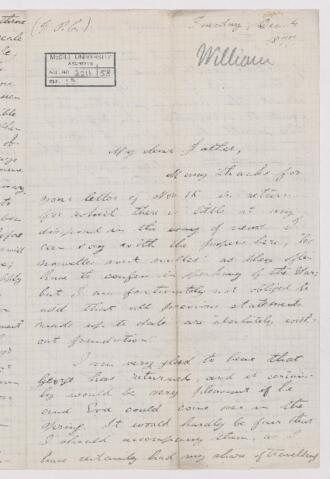 (F. P. C.)
Tuesday, Dec. 4
1877
William
McGILL UNIVERSITY
ARCHIVES
ACC. NO. 2211 / 58
REF. 13
My dear Father,
Many thanks for
your letter of Nov 15 in return
for which there is little at my
disposal in the way of news. I
can say with the papers here, "les
nouvelles sont nulles" as they often
have to confess in speaking of the War;
but I am fortunately not obliged to
add that all previous statements
made up to date are absolutely with-
out foundation.
I am very glad to hear that
George has returned, and it certain-
ly would be very pleasant if he
and Eva could come over in the
Spring. It would hardly be fair that
I should accompany them, as I
have certainly had my share of travelling